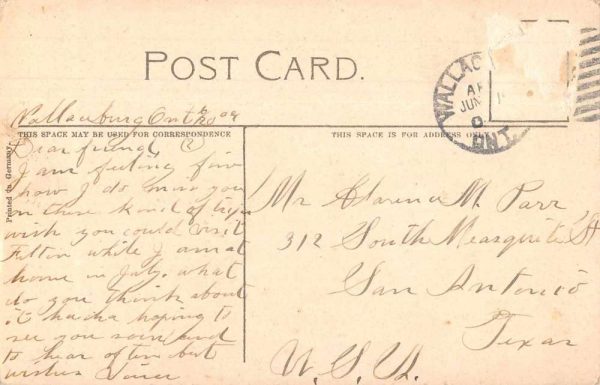 POST CARD.
WALLAC
JUN
ONT.
Wallaceburg Ont
THIS SPACE MAY BE USED FOR CORRESPONDENCE
THIS SPACE IS FOR ADDRESS ONLY
Printed in Germany.
Dear friend
I am feeling fine
how I do miss you
on these kind of trips
wish you could visit
while I am at
home in July. what
do you think about
it ha ha hoping to
see you soon and
to hear often best
wishes
Mr Clarence M. Parr
312 South Mesquite St
San Antonio
Texas
U.S.A.